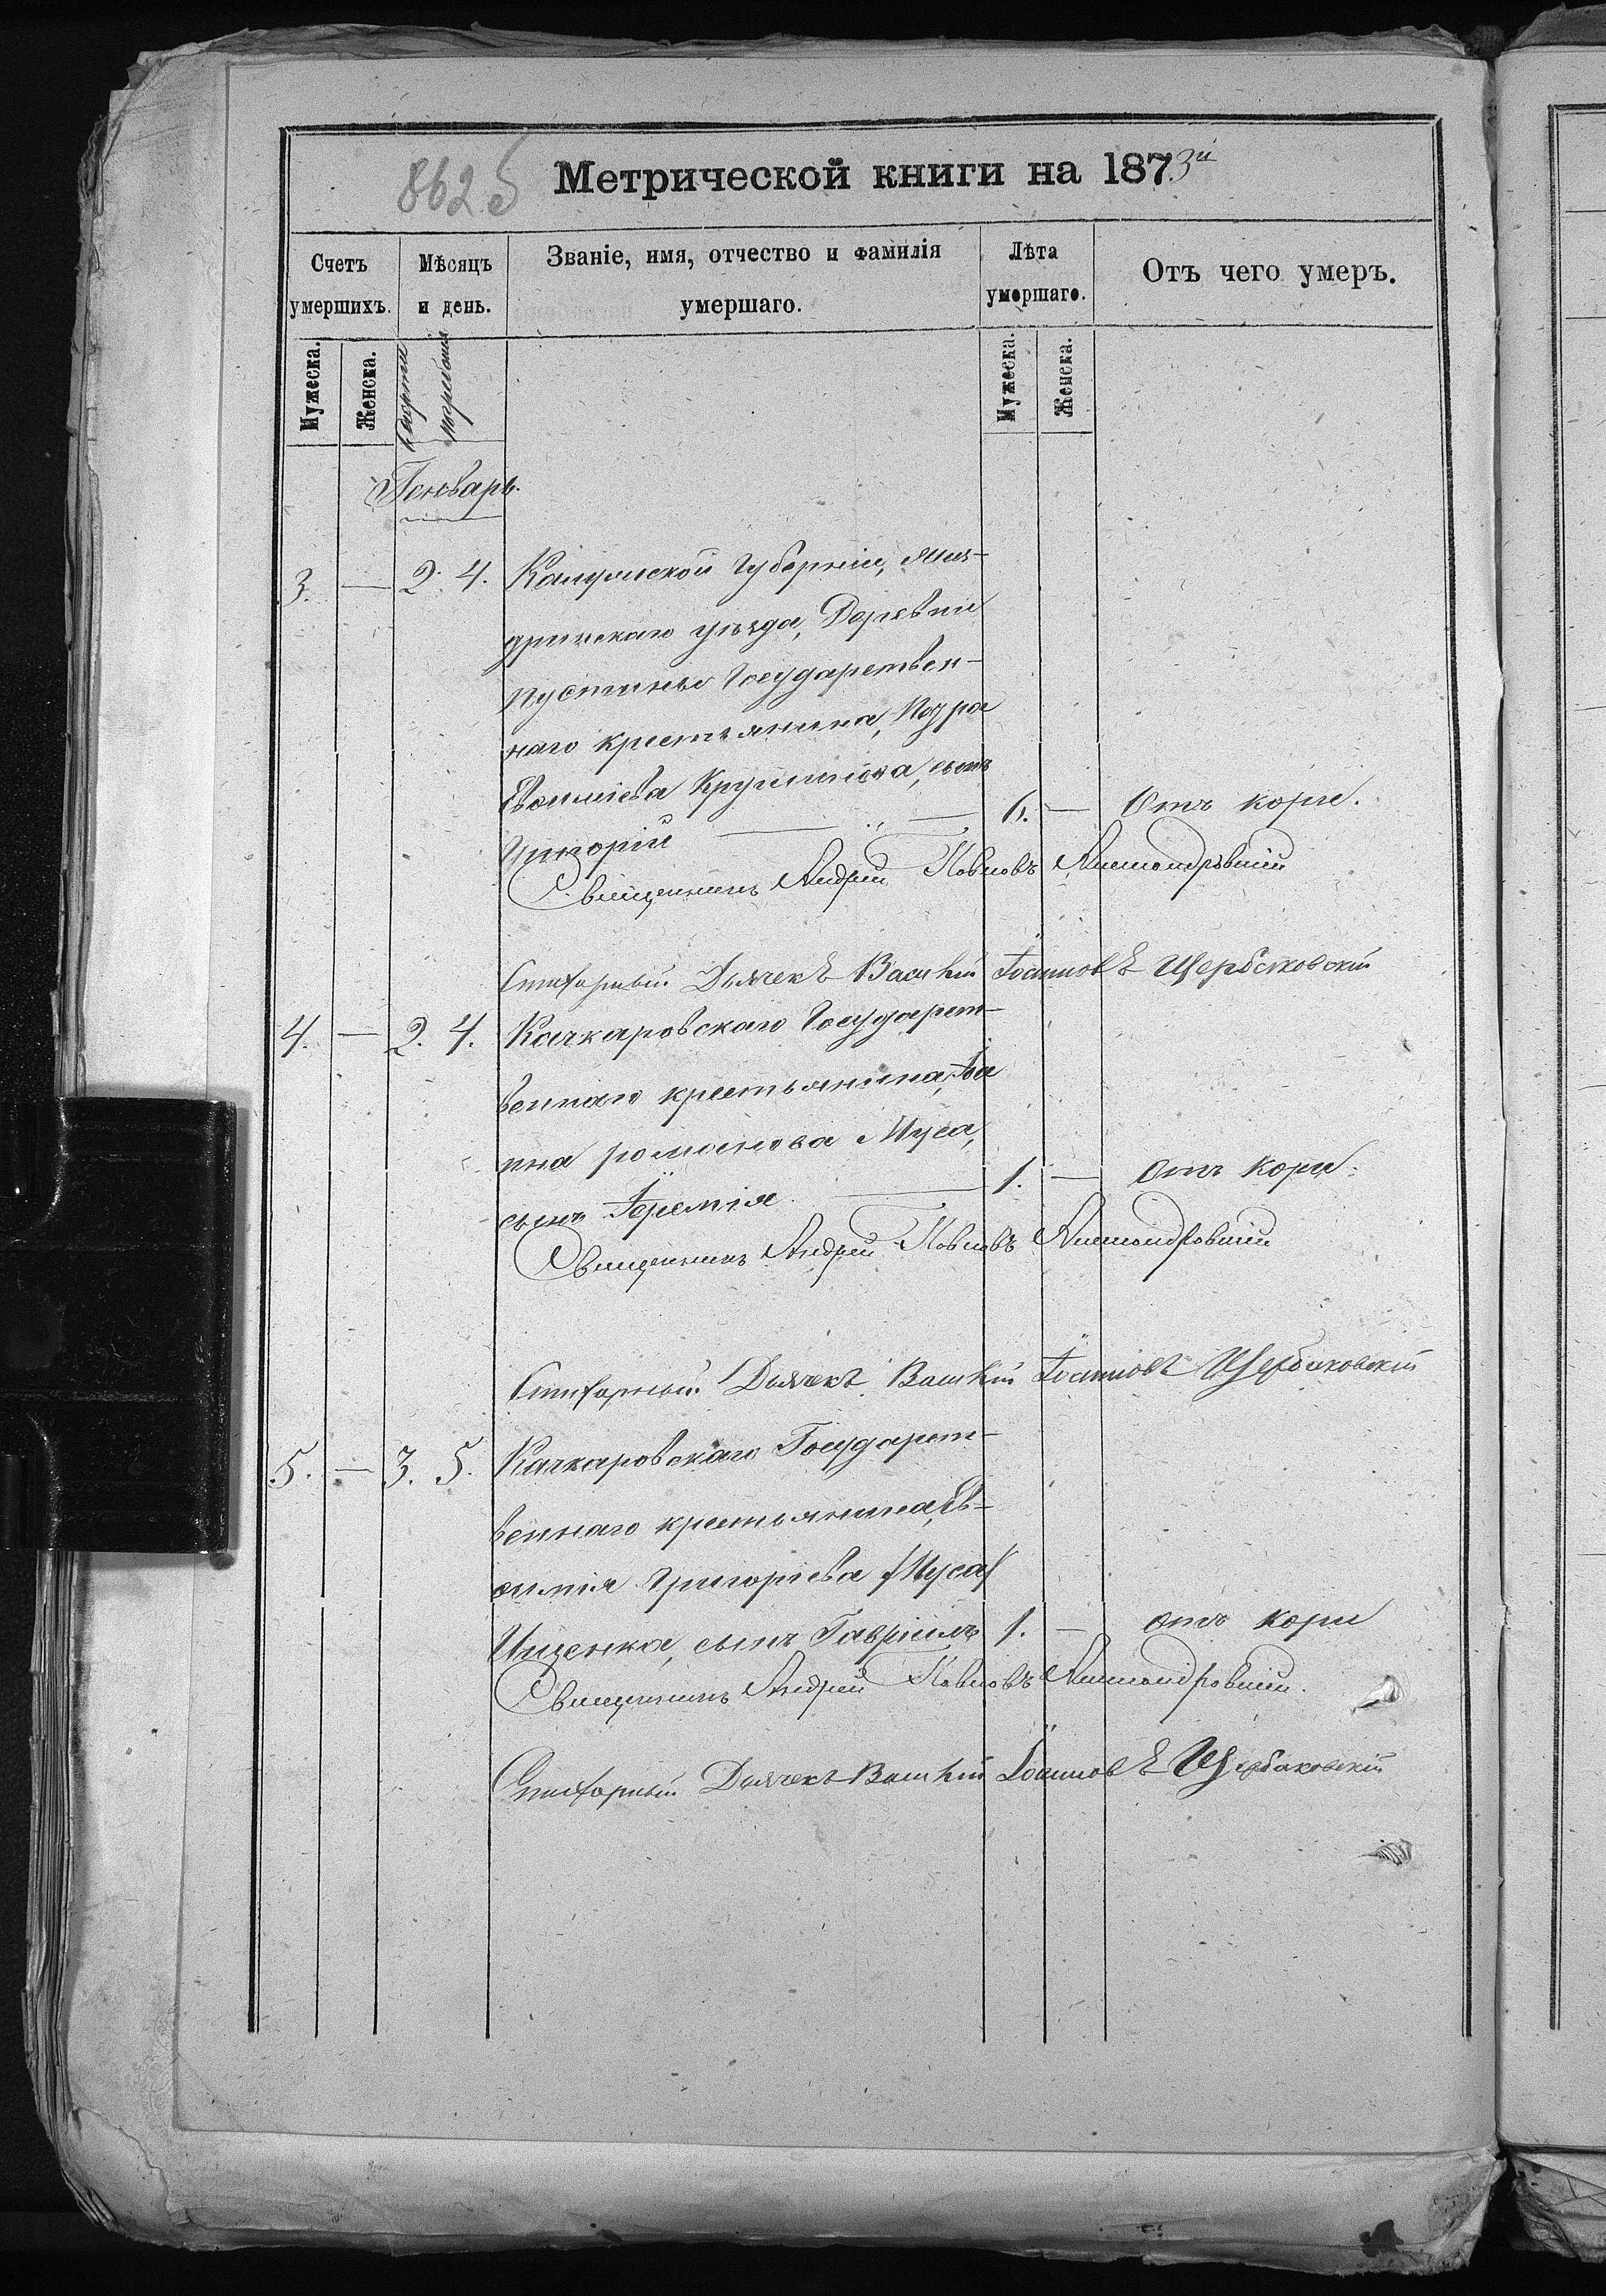 862б
Метрической книги на 1873й
Счетъ умершихъ.
Мѣсяцъ и день.
Званіе, имя, отчество и фамилія умершаго.
Лѣта умершаго.
Отъ чего умеръ.
Мужеска.
Женска.
смерти
погребенія
Мужеска.
Женска.
Генварь.
3. — 2. 4. Калужской Губерніи,
уѣзда, Деревни
Пустыньо Государствен-
наго крестьянина,
Евѳиміева сынъ
Григорій — 6. — Отъ кори.
Священникъ Андрей Павловъ
Дьячекъ Василій Іоанновъ Щербаковскій
4. — 2. 4. Качкаровскаго Государст-
веннаго крестьянина, Іоа
нна романова Муса,
сынъ Іеремія — 1. — Отъ кори.
Священникъ Андрей Павловъ
Дьячекъ Василій Іоанновъ Щербаковскій
5. — 3. 5. Качкаровскаго Государст-
веннаго крестьянина, Ев-
ѳимія Григоріева /Муса/
Ищенка, сынъ Гавріилъ 1. — отъ кори
Священникъ Андрей Павловъ
Дьячекъ Василій Іоанновъ Щербаковскій